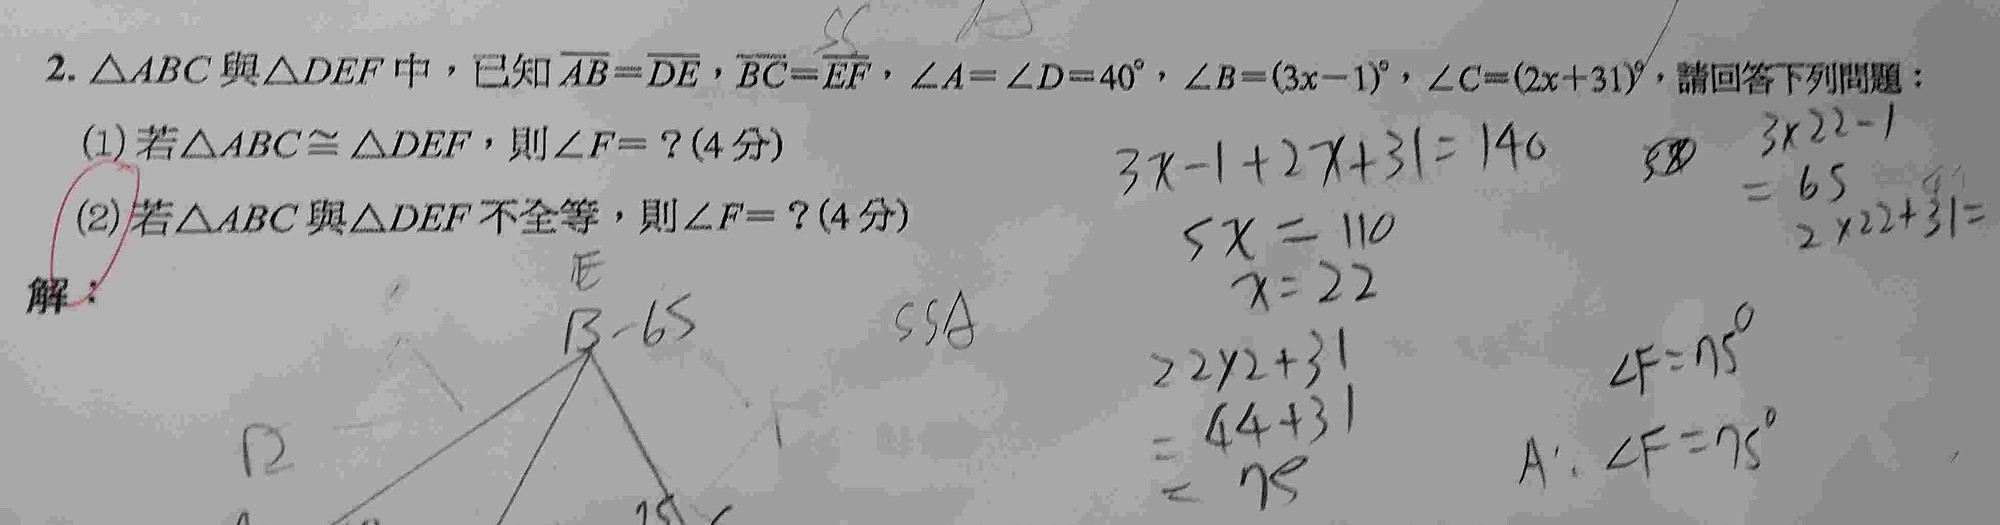 2. △ABC與△DEF中，已知AB=DE，BC=EF，∠A=∠D=40°，∠B=(3x-1)°，∠C=(2x+31)°，請回答下列問題：
(1) 若△ABC≅△DEF，則∠F=？(4分)
(2) 若△ABC與△DEF不全等，則∠F=？(4分)
解：
3x-1+2x+31=140
5x=110
x=22
22x2+31
=44+31
=75
3x22-1
=65
2x22+31=
E
B-65
SSA
D
75
C
∠F=75°
A: ∠F=75°